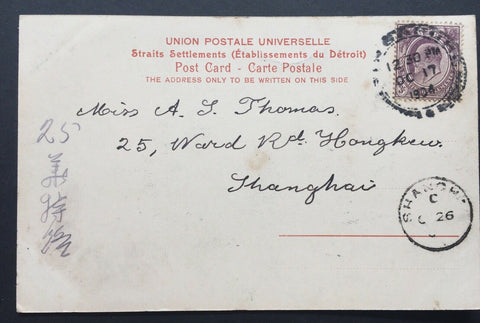 UNION POSTALE UNIVERSELLE
Straits Settlements (Etablissements du Détroit)
Post Card - Carte Postale
THE ADDRESS ONLY TO BE WRITTEN ON THIS SIDE
12 30 PM
OC 17
1904
Miss A. S. Thomas.
25, Ward Rd. Hongkew.
Shanghai
25
SHANGH
C
26